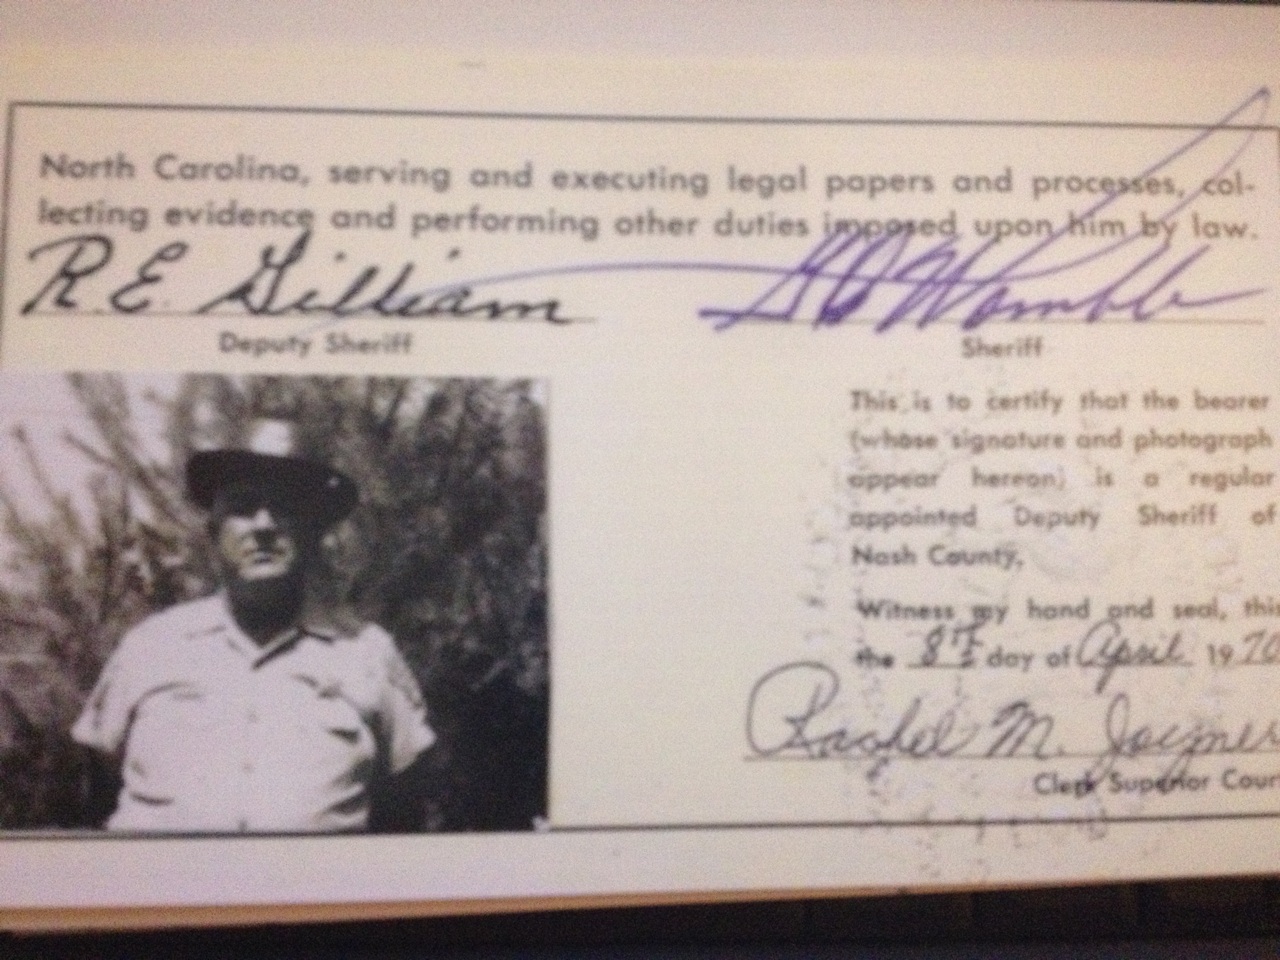 North Carolina, serving and executing legal papers and processes, col-
lecting evidence and performing other duties imposed upon him by law.
R. E. Gilliam
Deputy Sheriff
G O Womble
Sheriff
This is to certify that the bearer
(whose signature and photograph
appear hereon) is a regular
appointed Deputy Sheriff of
Nash County.
Witness my hand and seal, this
the 8th day of April 1970
Rachel M. Joyner
Clerk Superior Cour